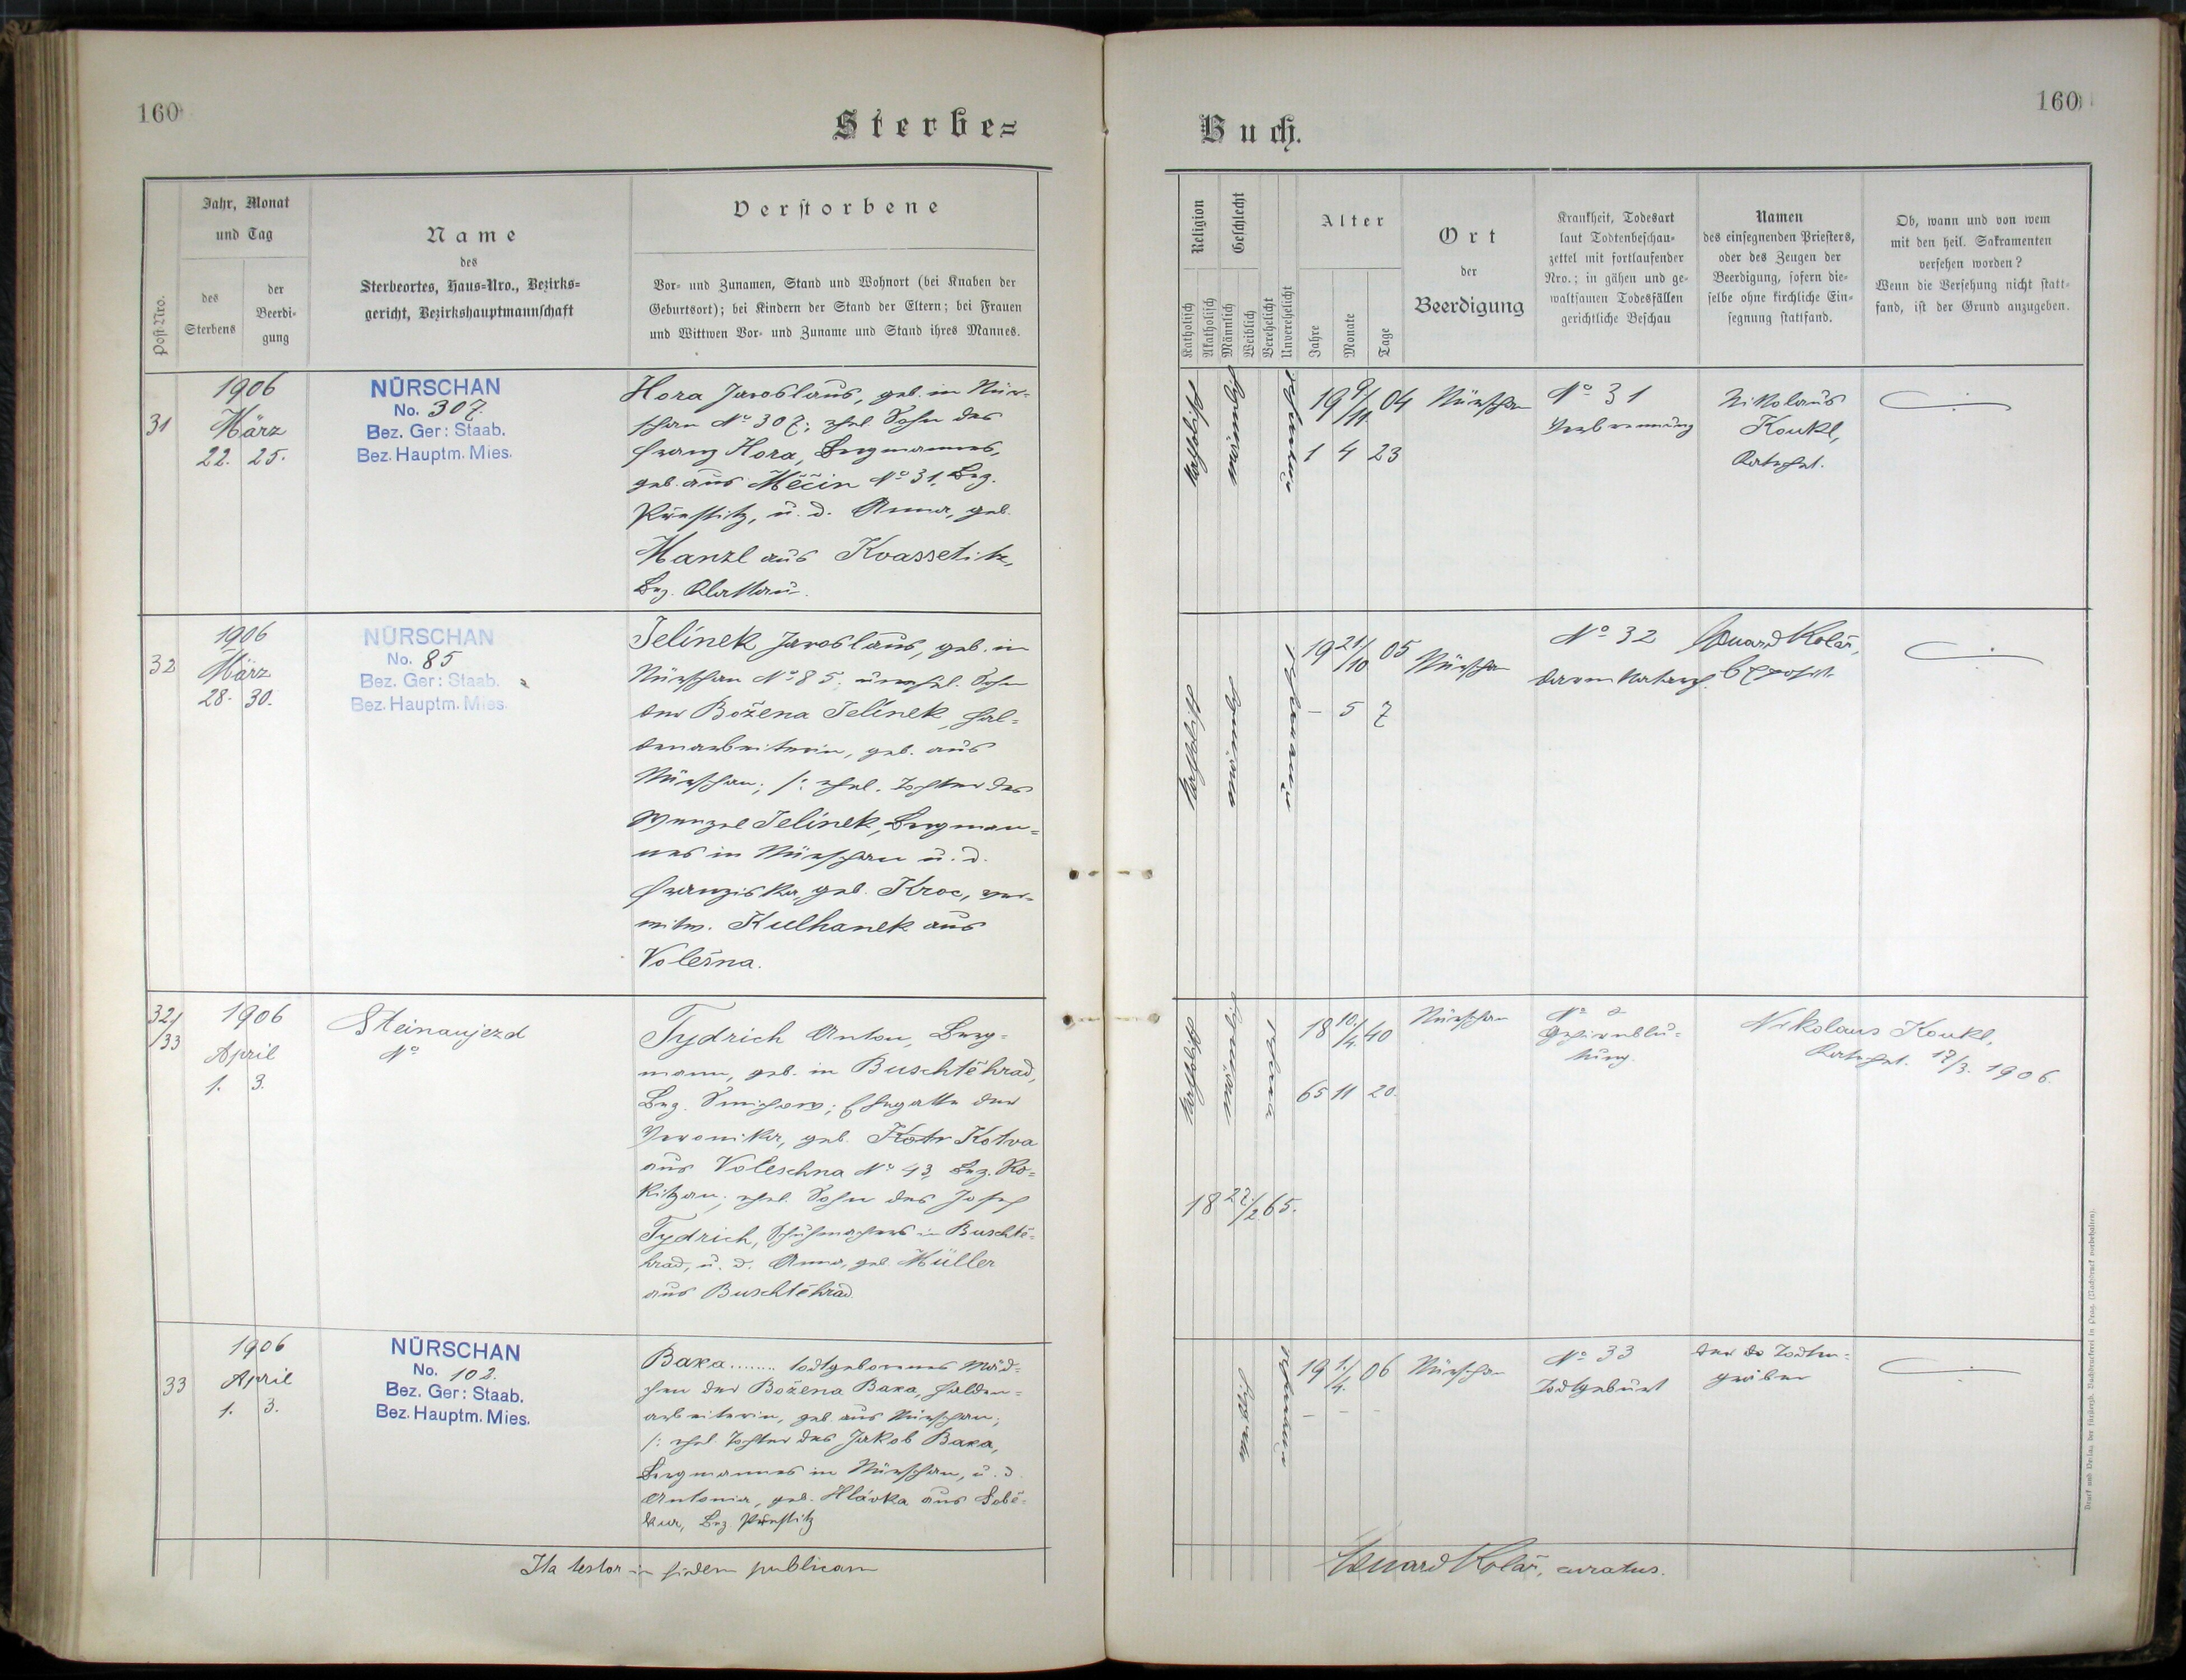 160
160
Sterbe=
Buch.
Post-Nro.
Jahr, Monat
und Tag
des
Sterbens
der
Beerdi-
gung
Name
des
Sterbeortes, Haus-Nro., Bezirks=
gericht, Bezirkshauptmannschaft
Verstorbene
Vor- und Zunamen, Stand und Wohnort (bei Knaben der
Geburtsort); bei Kindern der Stand der Eltern; bei Frauen
und Wittwen Vor- und Zuname und Stand ihres Mannes.
Religion
Katholisch
Akatholisch
Geschlecht
Männlich
Weiblich
Verehelicht
Unverehelicht
Alter
Jahre
Monate
Tage
Ort
der
Beerdigung
Krankheit, Todesart
laut Todtenbeschau-
zettel mit fortlaufender
Nro.; in gähen und ge-
waltsamen Todesfällen
gerichtliche Beschau
Namen
des einsegnenden Priesters,
oder des Zeugen der
Beerdigung, sofern die-
selbe ohne kirchliche Ein-
segnung stattfand.
Ob, wann und von wem
mit den heil. Sakramenten
versehen worden?
Wenn die Versehung nicht statt-
fand, ist der Grund anzugeben.
31
1906
März
22. 25.
NÜRSCHAN
No. 307.
Bez. Ger: Staab.
Bez. Hauptm. Mies.
Hora Jaroslaus, geb. in Nür-
schan No 307; ehel. Sohn des
Franz Hora, Bergmannes,
geb. aus Měčin No 31, Bez.
Přestitz, u. d. Anna, geb.
Manzl aus Kvassetitz,
Bez. Klattau.
Katholisch
19 9/11 04
1 4 23
Nürschan
No 31
Verbrennung
Nikolaus
Koukl,
Katechet.
32
1906
März
28. 30.
NÜRSCHAN
No. 85
Bez. Ger: Staab.
Bez. Hauptm. Mies.
Jelínek Jaroslaus, geb. in
Nürschan No 85. unehel. Sohn
der Božena Jelínek, Hal-
denarbeiterin, geb. aus
Nürschan; /: ehel. Tochter des
Wenzel Jelínek, Bergman=
nes in Nürschan u. d.
Franziska, geb. Kroc, ver-
witw. Kulhanek aus
Volešna.
Katholisch
19 21/10 05
– 5 7
Nürschan
No 32
Darmkatarrh.
Eduard Kolář,
Exposit.
32/
/33
1906
April
1. 3.
Steinaujezd
No
Tydrich Anton, Berg-
mann, geb. in Buschtěhrad,
Bez. Smichow; Ehegatte der
Veronika, geb. Kotr Kotva
aus Voleschna No 43, Bez. Ro-
kitzan; ehel. Sohn des Josef
Tydrich, Schuhmachers in Buschtě-
hrad, u. d. Anna, geb. Müller
aus Buschtěhrad.
Katholisch
18 10./4. 40
65 11 20.
18 22/2 65.
Nürschan
No
Gehirnblu-
tung.
Nikolaus Koukl,
Katechet. 17/3. 1906.
33
1906
April
1. 3.
NÜRSCHAN
No. 102.
Bez. Ger: Staab.
Bez. Hauptm. Mies.
Baxa ........ todtgeborenes Mäd-
chen der Božena Baxa, Halden-
arbeiterin, geb. aus Nürschan;
/: ehel. Tochter des Jakob Baxa,
Bergmannes in Nürschan, u. d.
Antonia, geb. Hlávka aus Sobě-
kur, Bez Přestitz
19 1./4. 06
– – –
Nürschan
No 33
Todtgeburt
Todten-
gräber
Ita testor in fidem publicam
Eduard Kolář, curatus.
Druck und Verlag der fürsterzb. Buchdruckerei in Prag. (Nachdruck vorbehalten).